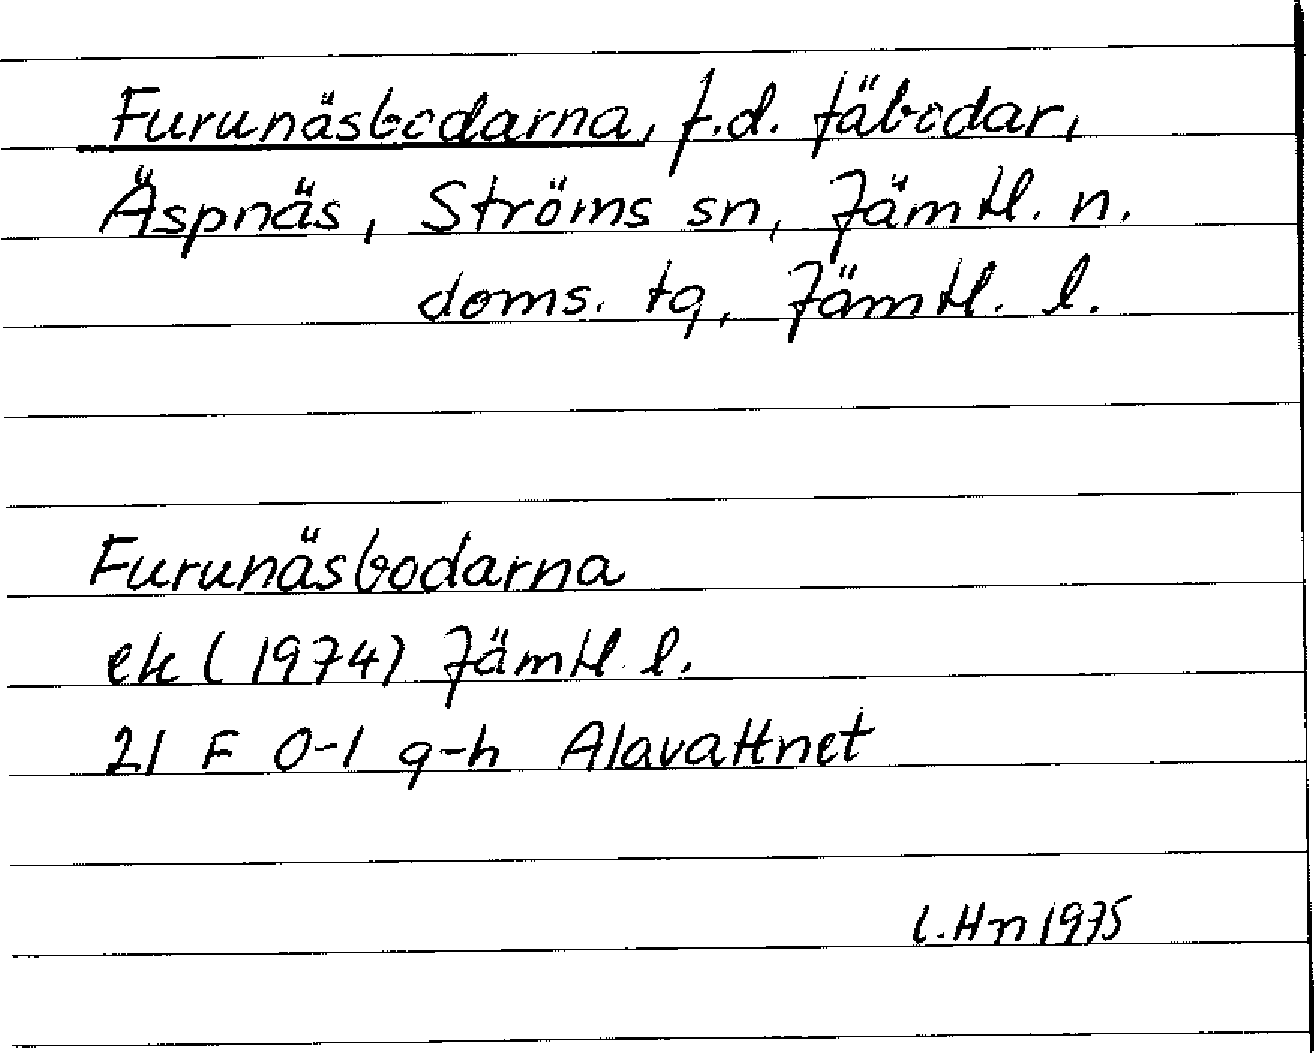 Furunäsbodarna, f.d. fäbodar,
Äspnäs, Ströms sn, Jämtl. n.
doms. tg, Jämtl. l.
Furunäsbodarna
ek (1974) Jämtl. l.
21 F 0-1 g-h Alavattnet
L.Hn 1975